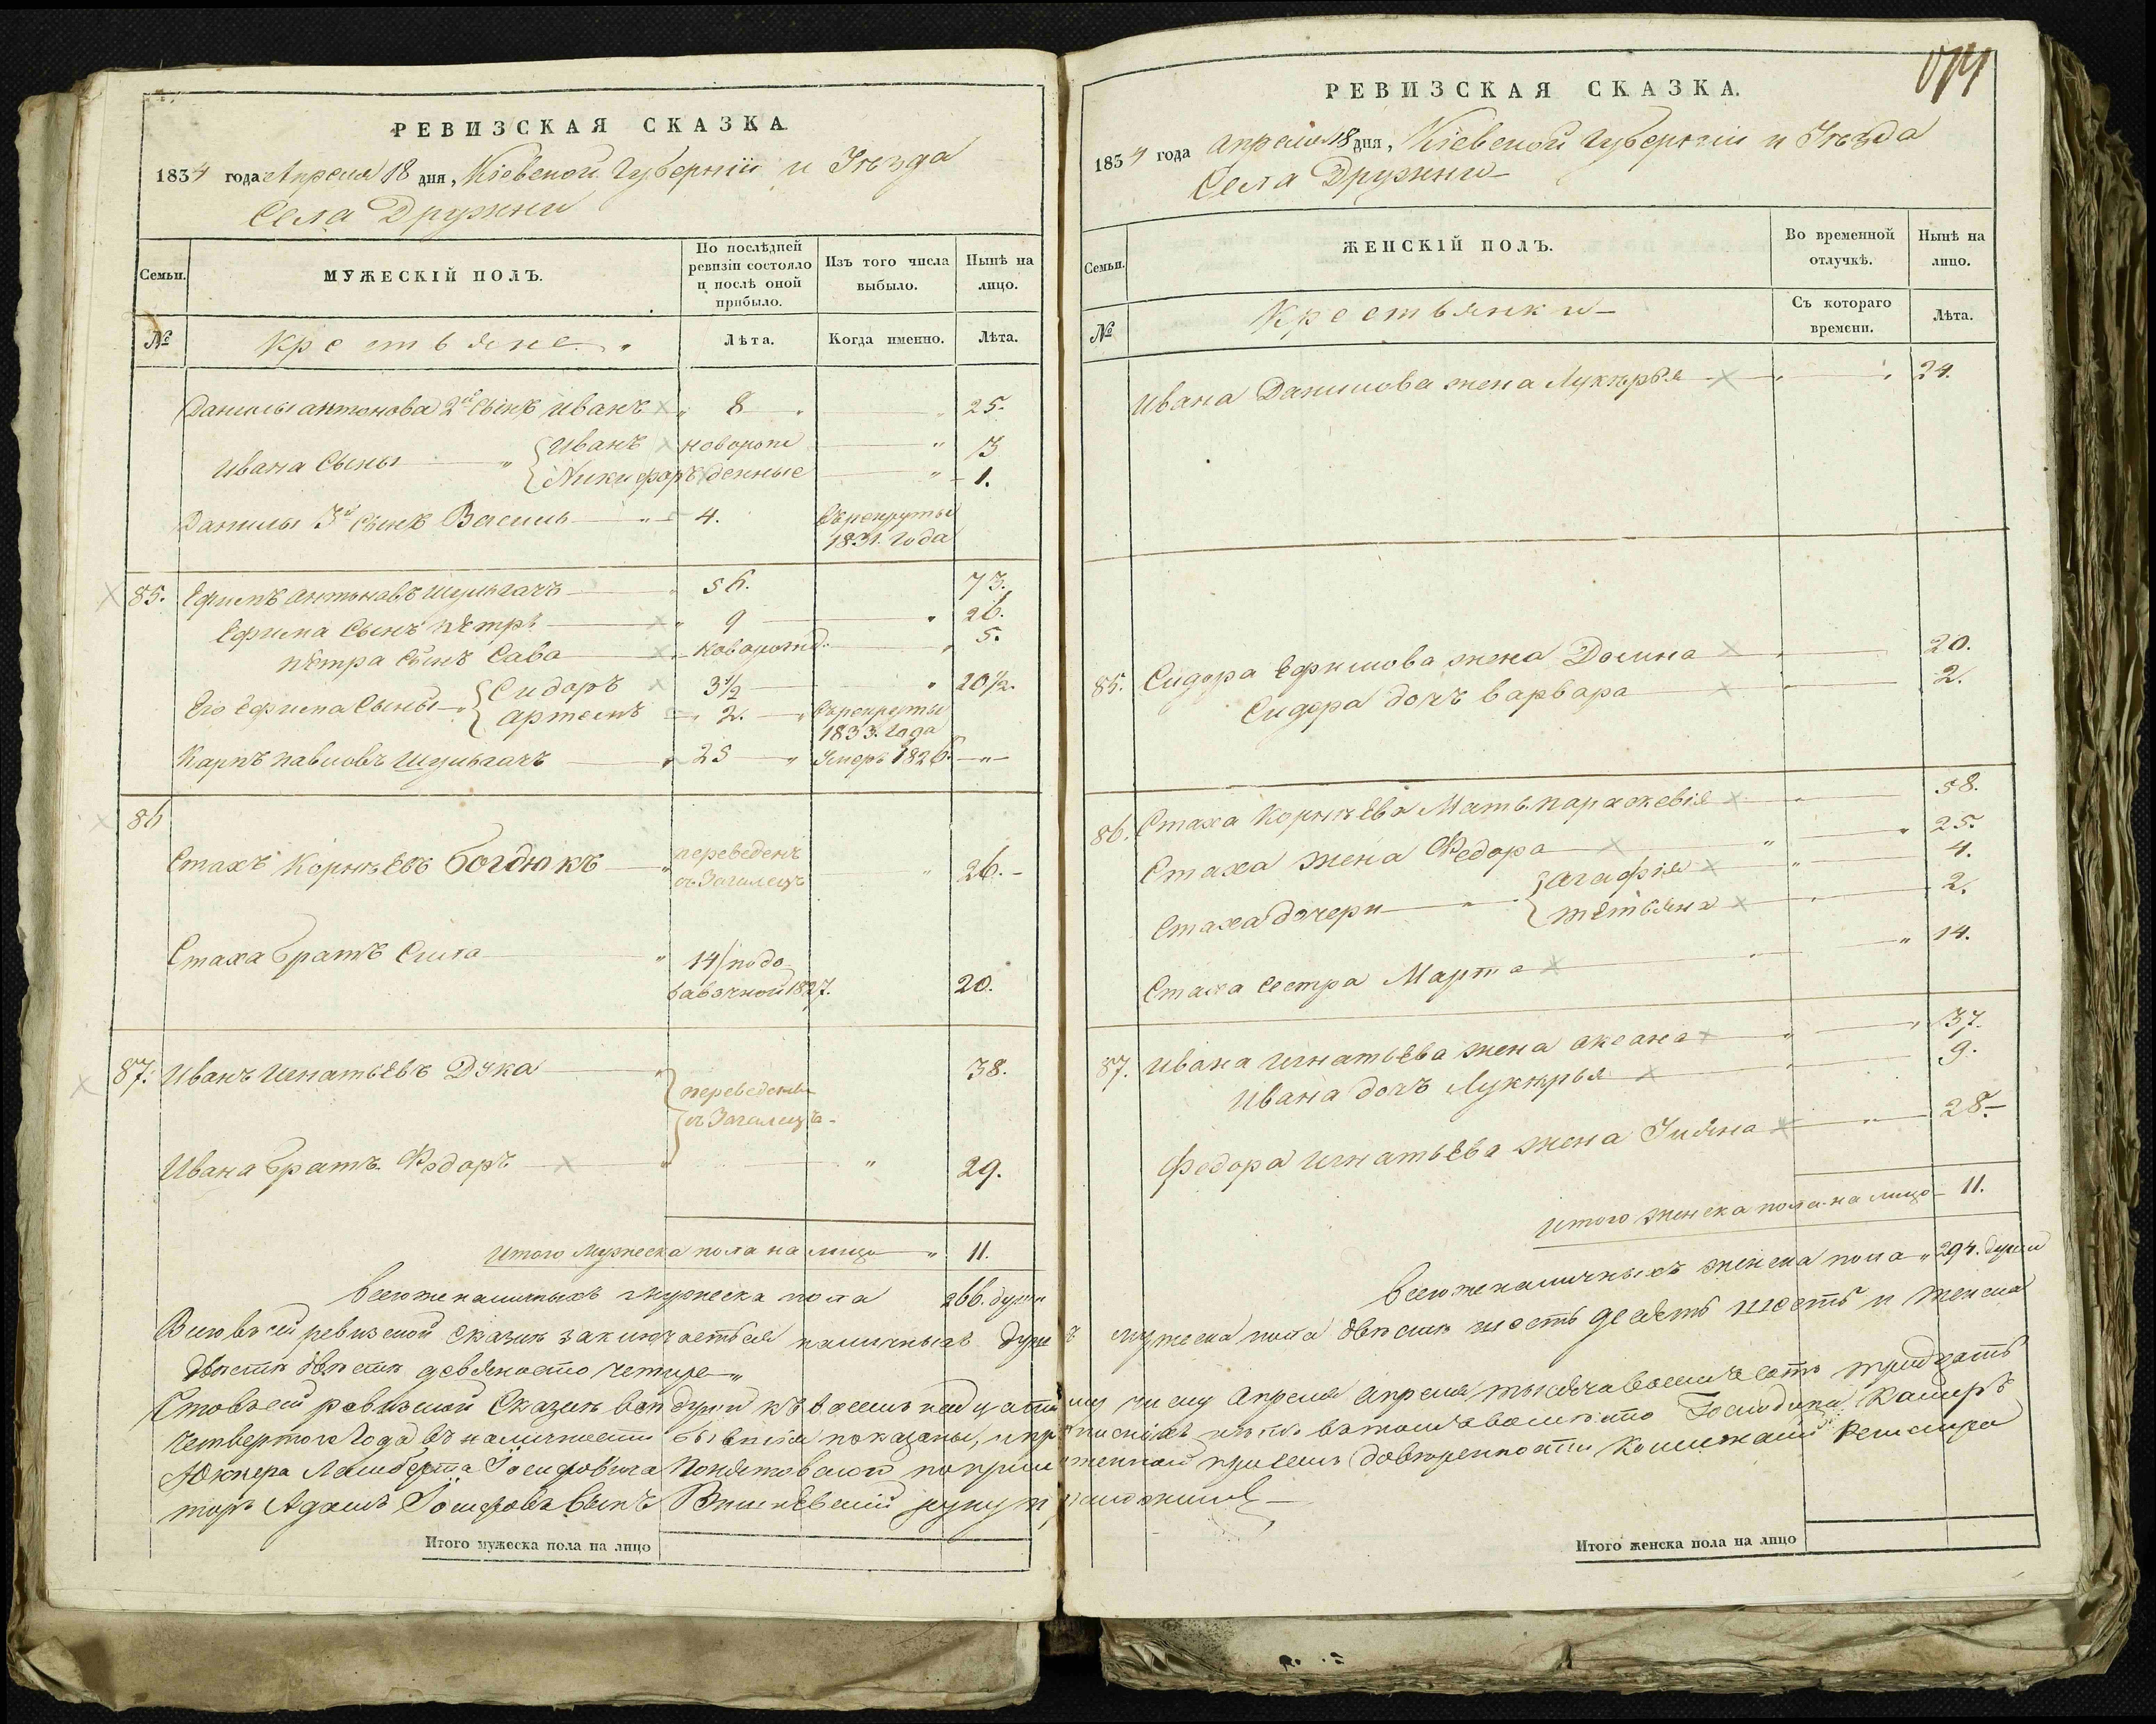 РЕВИЗСКАЯ СКАЗКА
1834 года Апреля 18 дня, Кіевской Губерніи и Уезда
Села Дружни
Семьи.
МУЖЕСКІЙ ПОЛЪ.
По послѣдней ревизіи состояло и послѣ оной прибыло.
Изъ того числа выбыло.
Нынѣ на лицо.
№
Крестьяне
Лѣта.
Когда именно.
Лѣта.
Данилы антонова 2й Сынъ иванъ 8 25.
Ивана Сыны { Иванъ новорож 3
{ Никифоръ денные 1.
Данилы 3й Сынъ Василь 4. въ рекруты
1831. Года
85. Ефимъ антоновъ шульгачъ 56. 73.
Ефима Сынъ пЕтръ 9 26.
пЕтра Сынъ Сава новорожд. 5.
Его Ефима Сыны { Сидоръ 3½ 20½.
{ артемъ 2. въ рекруты
1833. Года
Карпъ павловъ шульгачъ 25 Умеръ 1826.
86
Стахъ КорнѣЕвъ богдюкъ переведенъ 26.
съ Загалецъ
Стаха братъ Сила 14/ по до
бавочной 1827. 20.
87. Иванъ ИгнатьЕвъ Дука 38.
переведены
съ Загалецъ
Ивана братъ Федоръ 29.
Итого Мужеска пола на лицо 11.
Всего же наличныхъ мужеска пола 266. души
РЕВИЗСКАЯ СКАЗКА.
1834 года апреля 18 дня, Кіевской Губерніи и Уезда
Села Дружни
Семьи.
ЖЕНСКІЙ ПОЛЪ.
Во временной отлучкѣ.
Нынѣ на лицо.
№
Крестьянки
Съ котораго времени.
Лѣта.
Ивана Данилова жена Лукѣрья 24.
85. Сидора Ефимова жена Домна 20.
Сидора дочъ варвара 2.
86. Стаха КорнѣЕва Мать параскевія 58.
Стаха жена Федора 25.
Стаха дочери { агафія 4.
{ тЕтьяна 2.
Стаха Сестра Марта 14.
87. Ивана ИгнатьЕва жена аксана 37.
Ивана дочъ Лукѣрья 9.
Федора ИгнатьЕва жена Уляна 28.
Итого женска пола на лицо 11.
Всего же наличныхъ женска пола 294. души
Всего въ сей ревизской Сказке заключается наличныхъ душъ мужеска пола двѣсти шесть десятъ шесть и женска
двѣсти девяносто четире
Ставъ сей ревизской Сказки души къ восемнадцатому числу Апреля тысяча восемъ сотъ тридцать
четвертого Года въ наличности показаны, Господина
Юнкера Ламберта Іосифовича Понятовского по довѣренности
Адамъ Іосифовъ Сынъ руку приложилъ
Итого мужеска пола на лицо
Итого женска пола на лицо